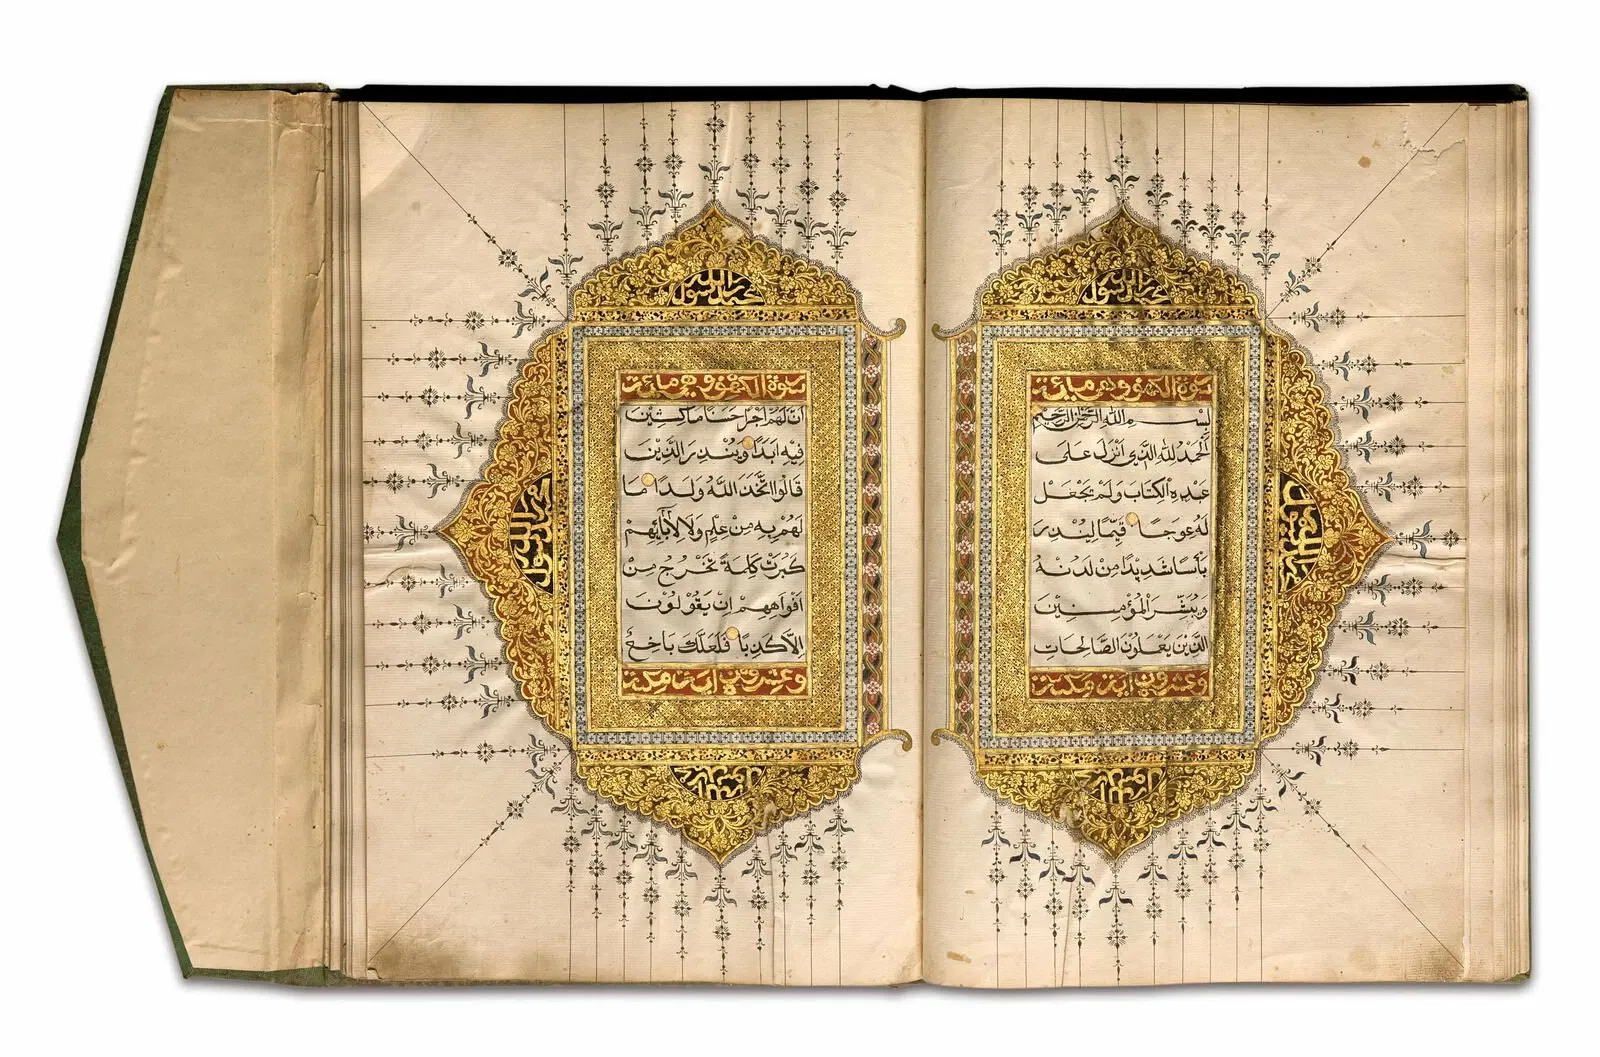 محمد رسول الله
سورة الكهف وهي مائة
بِسْمِ اللَّهِ الرَّحْمٰنِ الرَّحِيمِ
اَلْحَمْدُ لِلَّهِ الَّذِي اَنْزَلَ عَلَى
عَبْدِهِ الْكِتَابَ وَلَمْ يَجْعَلْ
لَهُ عِوَجًا قَيِّمًا لِيُنْذِرَ
بَأْسًا شَدِيدًا مِنْ لَدُنْهُ
وَيُبَشِّرَ الْمُؤْمِنِينَ
الَّذِينَ يَعْمَلُونَ الصَّالِحَاتِ
اية مكية
محمد رسول الله
سورة الكهف وهي مائة
اَنَّ لَهُمْ اَجْرًا حَسَنًا مَاكِثِينَ
فِيهِ اَبَدًا وَيُنْذِرَ الَّذِينَ
قَالُوا اتَّخَذَ اللَّهُ وَلَدًا مَا
لَهُمْ بِهِ مِنْ عِلْمٍ وَلَا لِاٰبَائِهِمْ
كَبُرَتْ كَلِمَةً تَخْرُجُ مِنْ
اَفْوَاهِهِمْ اِنْ يَقُوْلُوْنَ
اِلَّا كَذِبًا فَلَعَلَّكَ بَاخِعٌ
اية مكية
محمد رسول الله